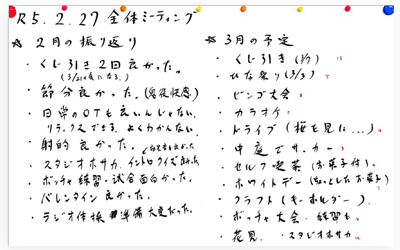 R5.2.27 全体ミーティング
☆ 2月の振り返り
・くじ引き2回良かった。
(3/21は気になる。)
・節分良かった。(鬼役快感)
・日常のOTも良いんじゃない。
リラックスできる。よくわかんない。
・射的良かった。
・スタジオホサカ、イントロクイズ
・ボッチャ練習・試合面白かった。
・バレンタイン良かった。
・ラジオ体操 準備大変だった。
☆ 3月の予定
・くじ引き
・ひな祭り(3/3)
・ビンゴ大会
・カラオケ
・ドライブ(桜を見に…)
・中庭でサッカー
・セルフ喫茶(お菓子付)
・ホワイトデー(お菓子)
・クラフト(キーホルダー)
・ボッチャ大会・練習も
・花見 ・スタジオホサカ